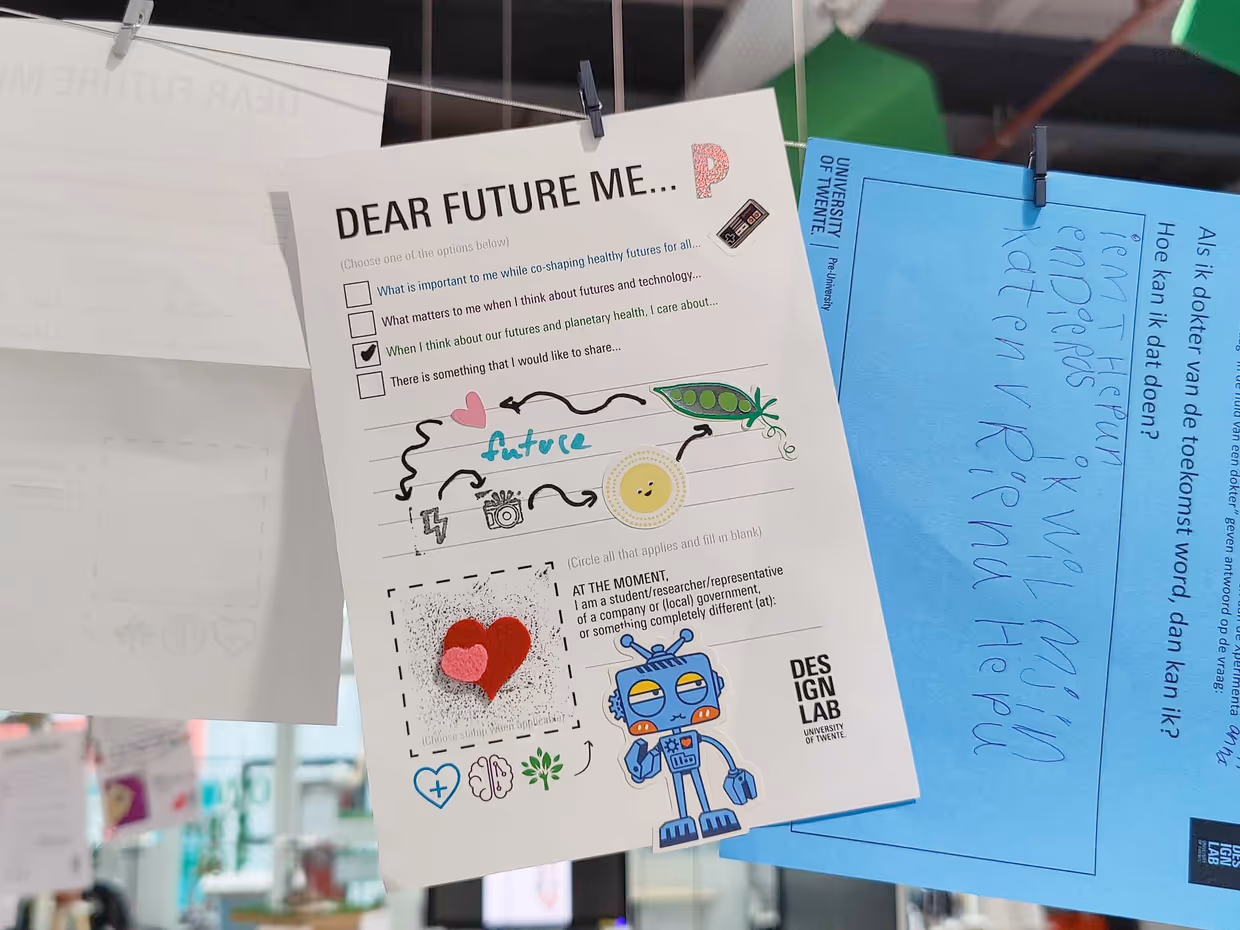 DEAR FUTURE ME...
P
(Choose one of the options below)
What is important to me while co-shaping healthy futures for all...
What matters to me when I think about futures and technology...
When I think about our futures and planetary health, I care about...
There is something that I would like to share...
future
(Circle all that applies and fill in blank)
AT THE MOMENT,
I am a student/researcher/representative
of a company or (local) government,
or something completely different (at):
(Choose stamp when applicable)
DES
IGN
LAB
UNIVERSITY
OF TWENTE.
UNIVERSITY
OF TWENTE.
Pre-University
geven antwoord op de vraag:
Als ik dokter van de toekomst word, dan kan ik?
Hoe kan ik dat doen?
ik wil mijn
DES
IGN
LAB
DEAR FUTURE